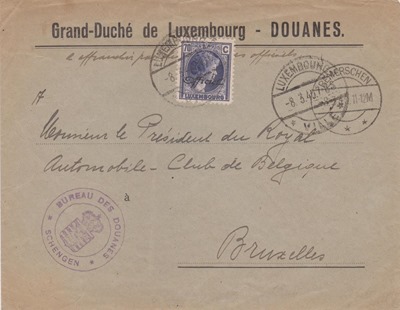 Grand-Duché de Luxembourg - DOUANES.
à affranchir
LUXEMBOURG
70 C
Officiel
LUXEMBOURG
LUXEMBOURG
-8.3.40
VILLE
11-12M
A
Monsieur le Président du Royal
Automobile-Club de Belgique
à
Bruxelles
BUREAU DES DOUANES
SCHENGEN